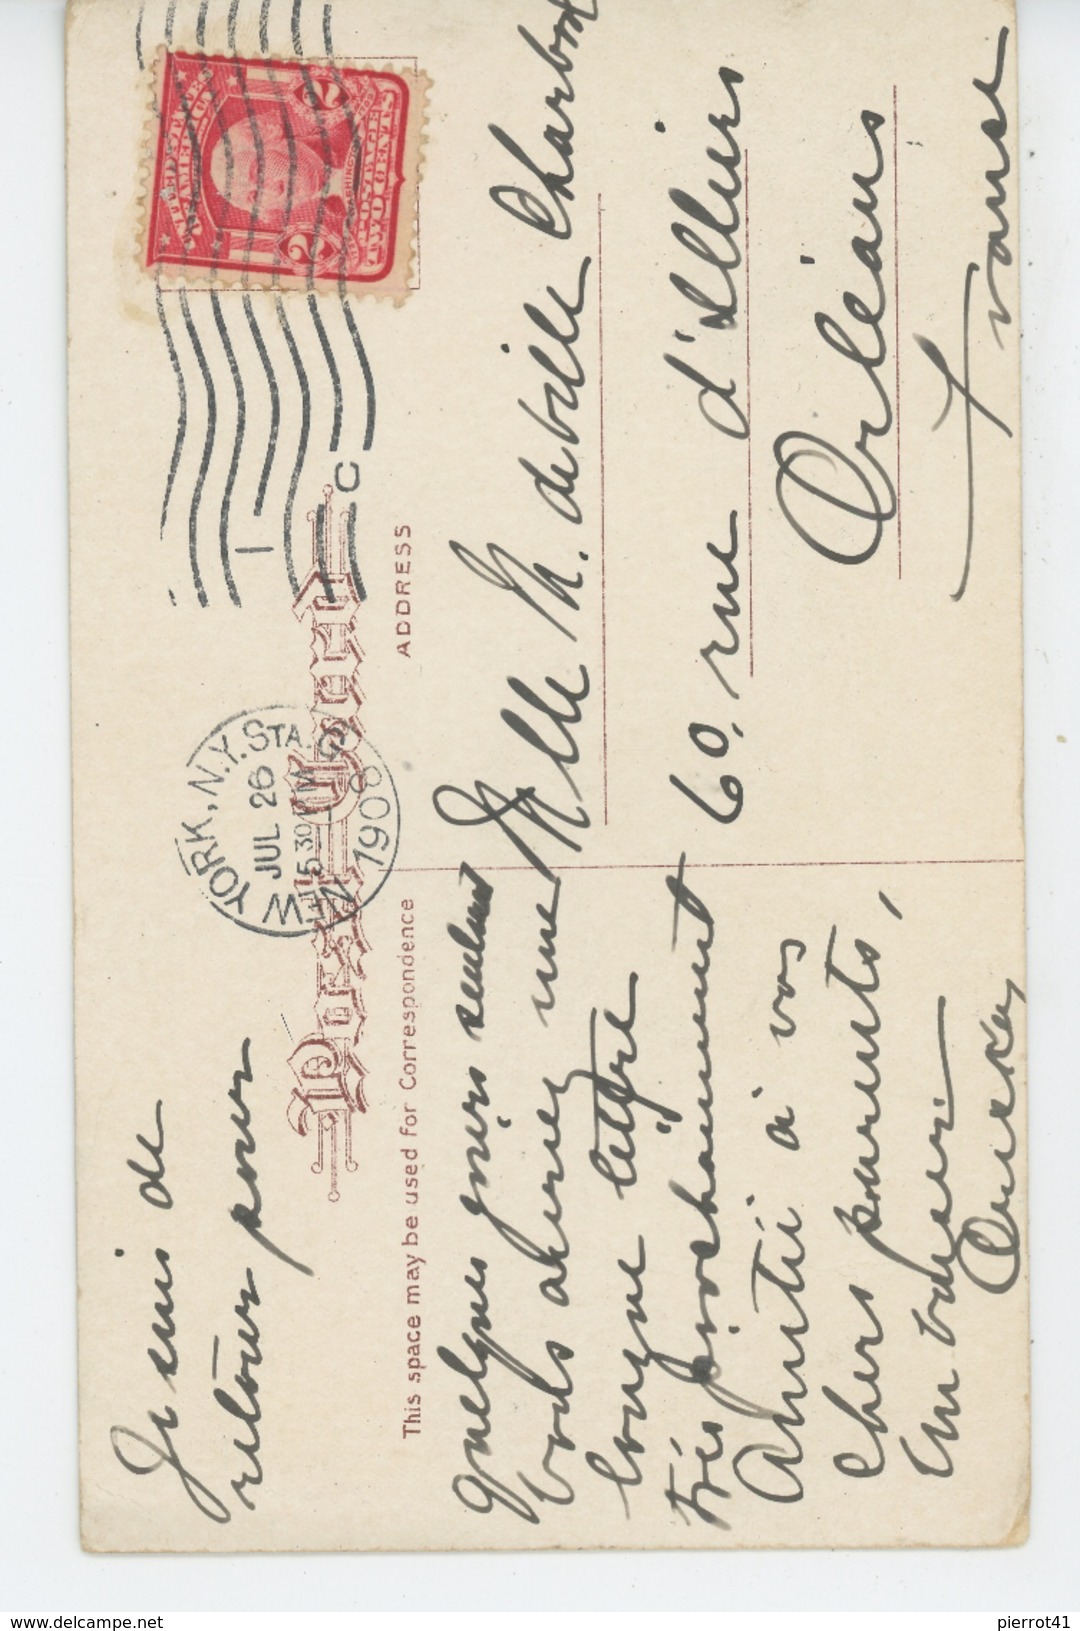 Je suis de
retour pour
Post Card
This space may be used for Correspondence
quelques jours seulement
vous aurez une
longue lettre
très prochainement
Amitié à vos
chers parents,
un baiser
NEW YORK, N.Y. STA.
JUL 26
5 30 PM
1908
C
UNITED STATES
OF AMERICA
WASHINGTON
POSTAGE
TWO CENTS
2
2
ADDRESS
Mlle M. debille Charbon
60, rue d'Illiers
Orléans
France
www.delcampe.net
pierrot41